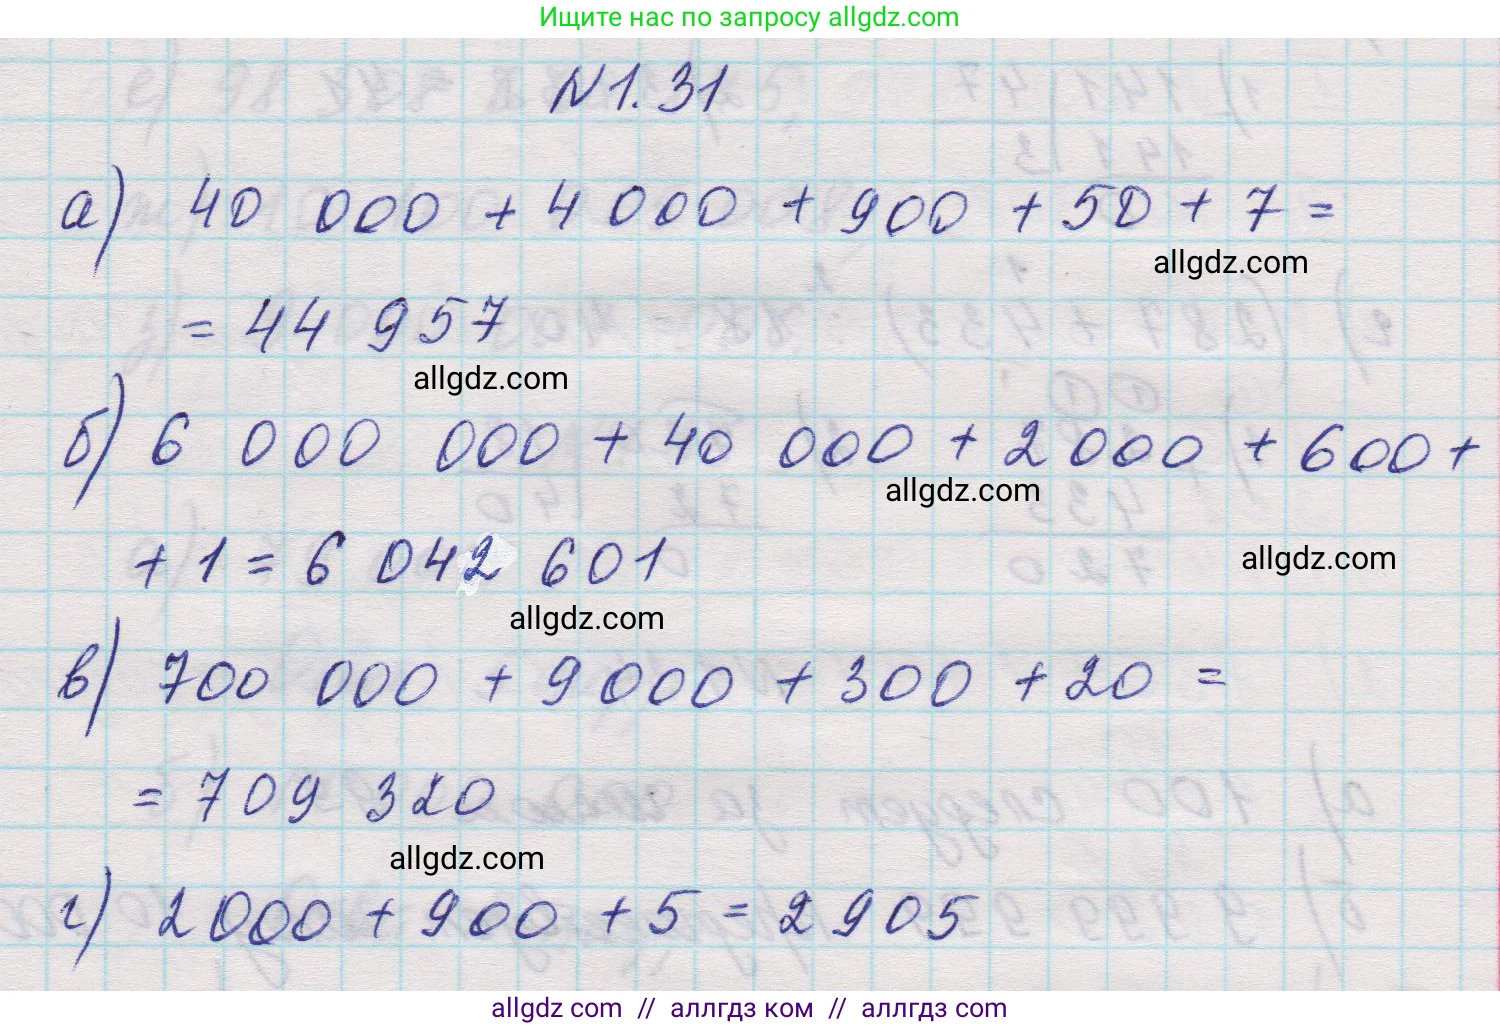 Ищите нас по запросу allgdz.com
N1.31
а) 40 000 + 4 000 + 900 + 50 + 7 =
allgdz.com
= 44 957
allgdz.com
б) 6 000 000 + 40 000 + 2 000 + 600 +
allgdz.com
+ 1 = 6 042 601
allgdz.com
allgdz.com
в) 700 000 + 9 000 + 300 + 20 =
= 709 320
allgdz.com
г) 2000 + 900 + 5 = 2 905
allgdz com // аллгдз ком // аллгдз com